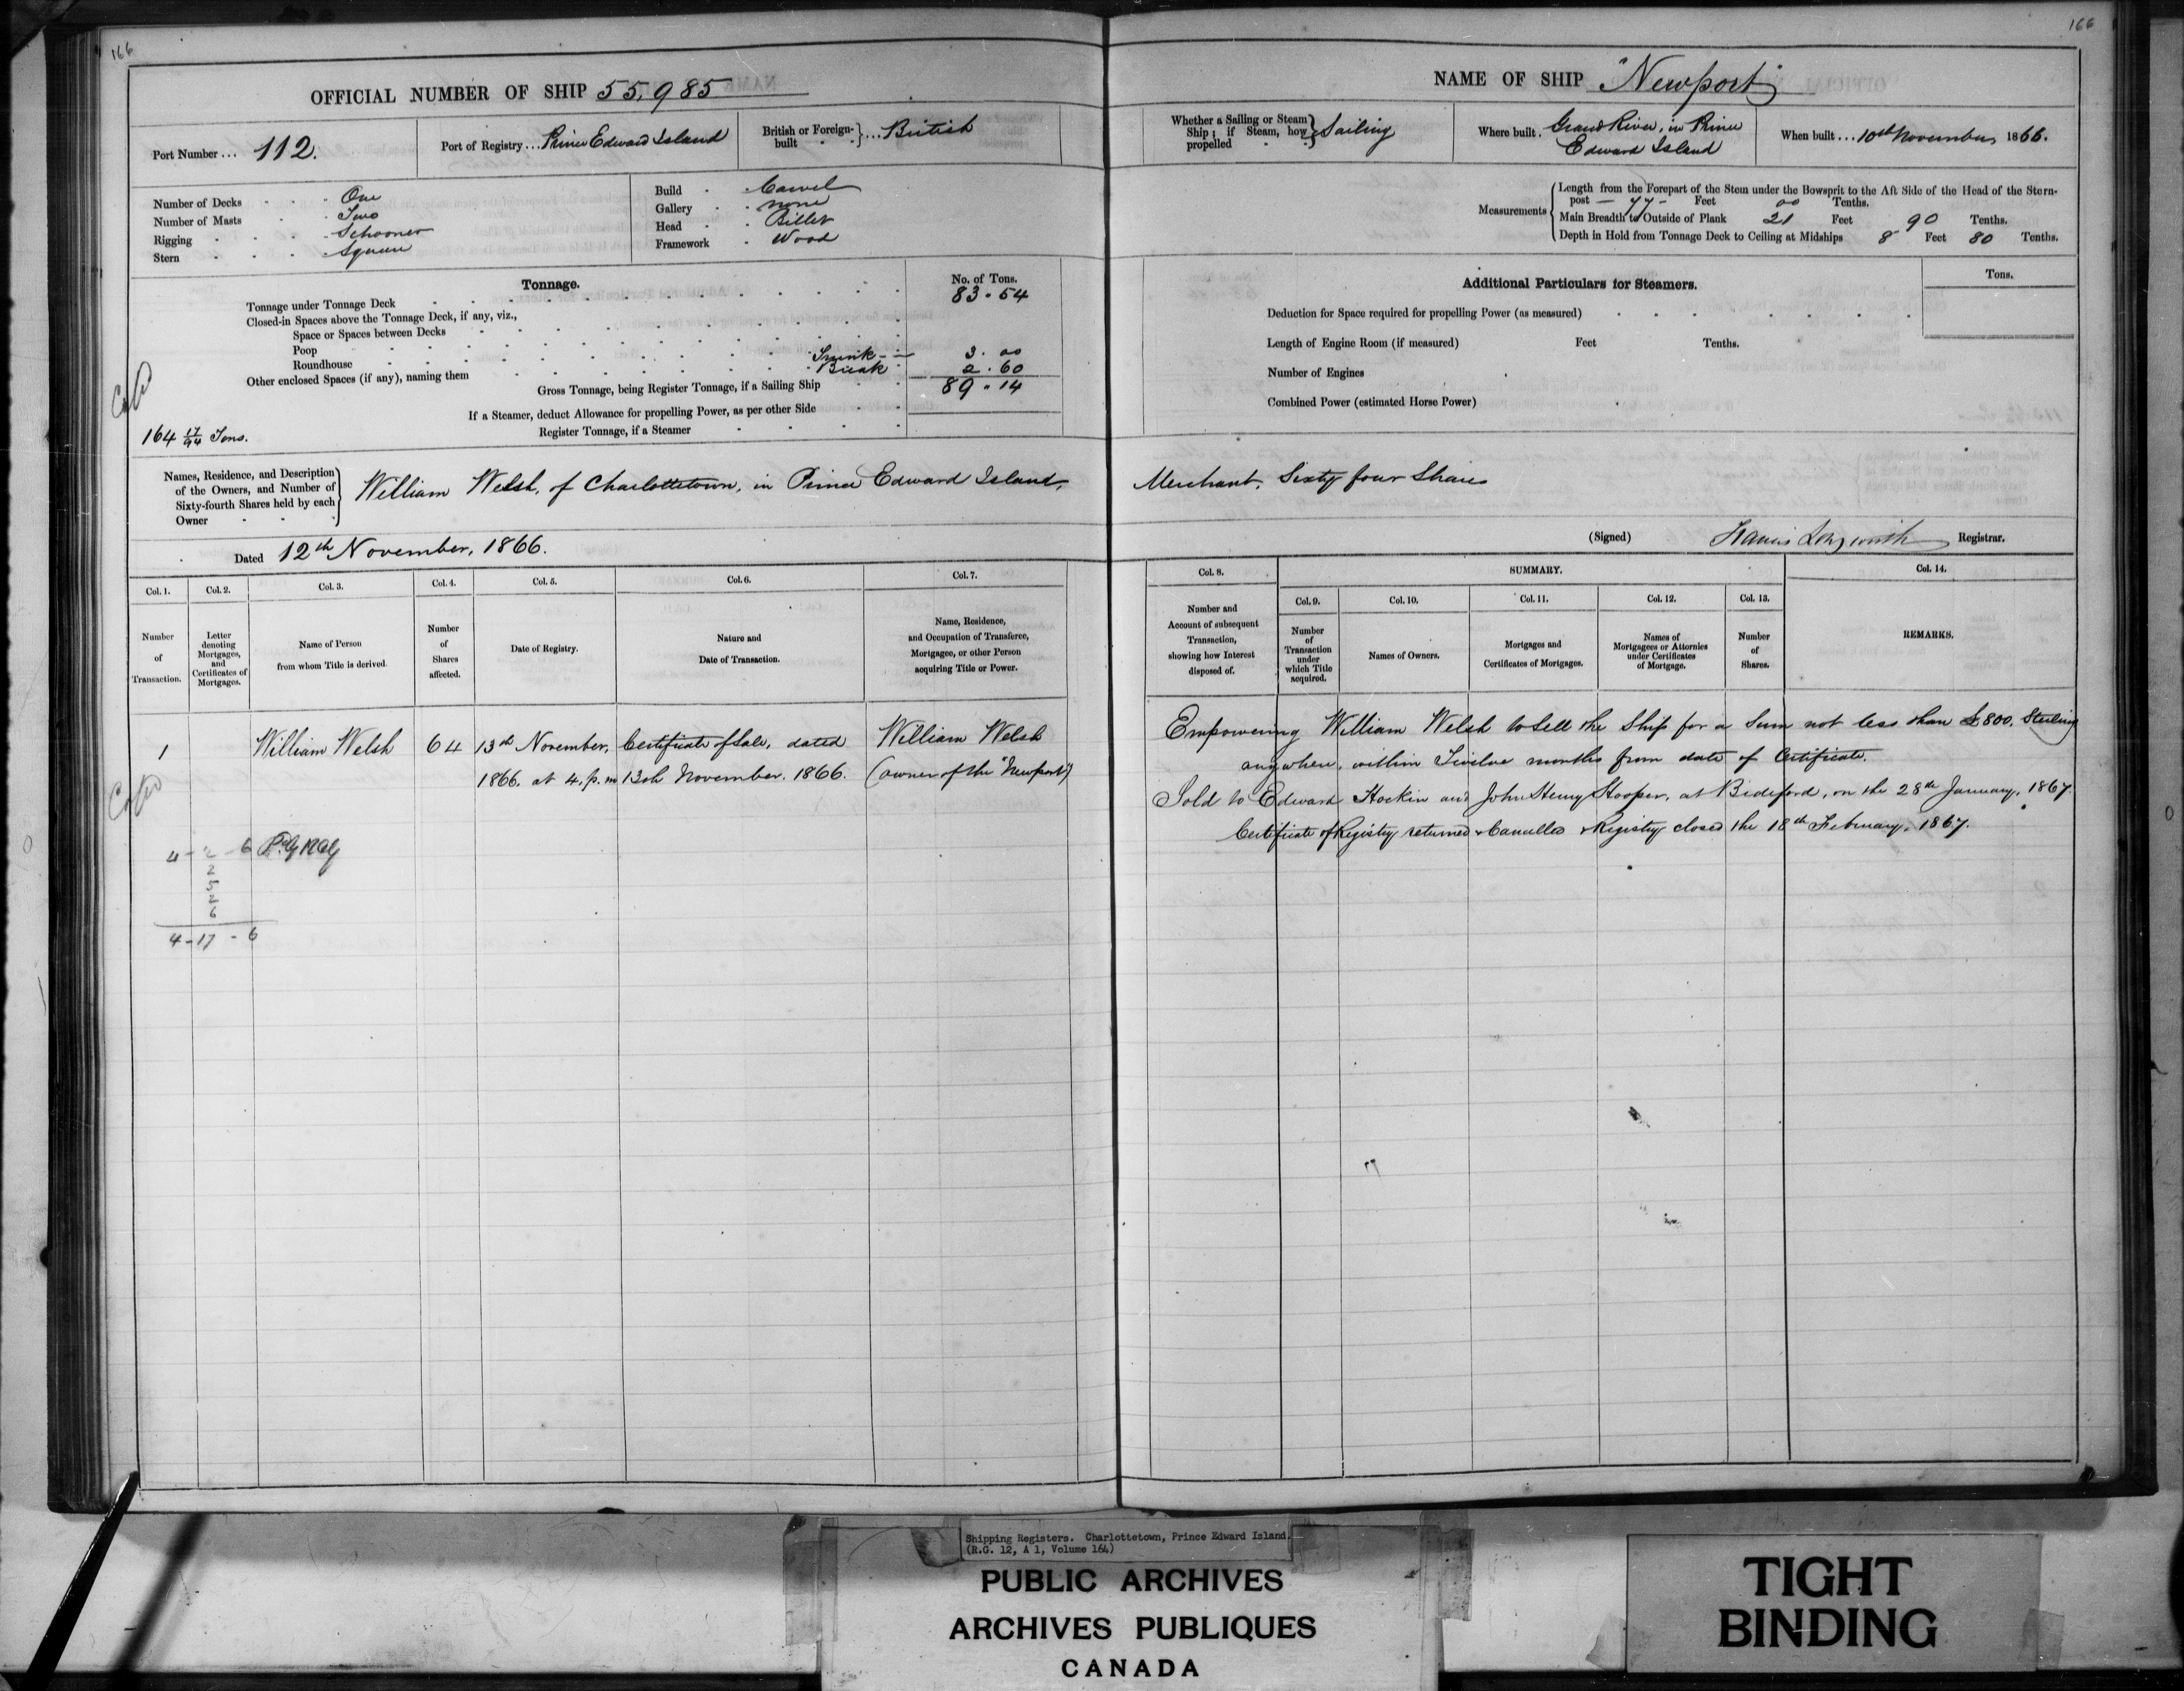 166
OFFICIAL NUMBER OF SHIP 55,985
Port Number ... 112.
Port of Registry ... Prince Edward Island
British or Foreign-built ... British
Number of Decks One
Number of Masts Two
Rigging Schooner
Stern Square
Build Carvel
Gallery None
Head Billet
Framework Wood
Tonnage.
No. of Tons.
Tonnage under Tonnage Deck 83.54
Closed-in Spaces above the Tonnage Deck, if any, viz.,
Space or Spaces between Decks
Poop
Roundhouse Trunk 3.00
Other enclosed Spaces (if any), naming them Break 2.60
Gross Tonnage, being Register Tonnage, if a Sailing Ship 89.14
If a Steamer, deduct Allowance for propelling Power, as per other Side
Register Tonnage, if a Steamer
164 17/94 Tons.
Names, Residence, and Description
of the Owners, and Number of
Sixty-fourth Shares held by each
Owner
William Welsh, of Charlottetown, in Prince Edward Island,
Dated 12th November, 1866.
Col. 1. Col. 2. Col. 3. Col. 4. Col. 5. Col. 6. Col. 7.
Number of Transaction.
Letter denoting Mortgages, and Certificates of Mortgages.
Name of Person from whom Title is derived.
Number of Shares affected.
Date of Registry.
Nature and Date of Transaction.
Name, Residence, and Occupation of Transferee, Mortgagee, or other Person acquiring Title or Power.
1 William Welsh 64 13th November, Certificate of Sale, dated William Welsh
1866. at 4. p.m 13th November. 1866. (owner of the "Newport")
4 - 2 - 6
2
5
2
6
4-17-6
166
NAME OF SHIP "Newport"
Whether a Sailing or Steam Ship; if Steam, how propelled Sailing
Where built. Grand River, in Prince
Edward Island
When built ... 10th November, 1866.
Measurements
Length from the Forepart of the Stem under the Bowsprit to the Aft Side of the Head of the Stern-
post - 77 - Feet 00 Tenths.
Main Breadth to Outside of Plank 21 Feet 90 Tenths.
Depth in Hold from Tonnage Deck to Ceiling at Midships 8 Feet 80 Tenths.
Additional Particulars for Steamers.
Tons.
Deduction for Space required for propelling Power (as measured)
Length of Engine Room (if measured) Feet Tenths.
Number of Engines
Combined Power (estimated Horse Power)
Merchant. Sixty four Shares
(Signed) Francis Longworth Registrar.
Col. 8. SUMMARY. Col. 14.
Col. 9. Col. 10. Col. 11. Col. 12. Col. 13.
Number and Account of subsequent Transaction, showing how Interest disposed of.
Number of Transaction under which Title acquired.
Names of Owners.
Mortgages and Certificates of Mortgages.
Names of Mortgagees or Attornies under Certificates of Mortgage.
Number of Shares.
REMARKS.
Empowering William Welsh to Sell the Ship for a Sum not less than £800. Sterling
anywhere, within Twelve months from date of Certificate.
Sold to Edward Hockin and John Henry Hooper, at Bideford, on the 28th January, 1867.
Certificate of Registry returned & Cancelled & Registry closed the 18th February, 1867.
Shipping Registers. Charlottetown, Prince Edward Island.
(R.G. 12, A 1, Volume 164)
PUBLIC ARCHIVES
ARCHIVES PUBLIQUES
CANADA
TIGHT
BINDING